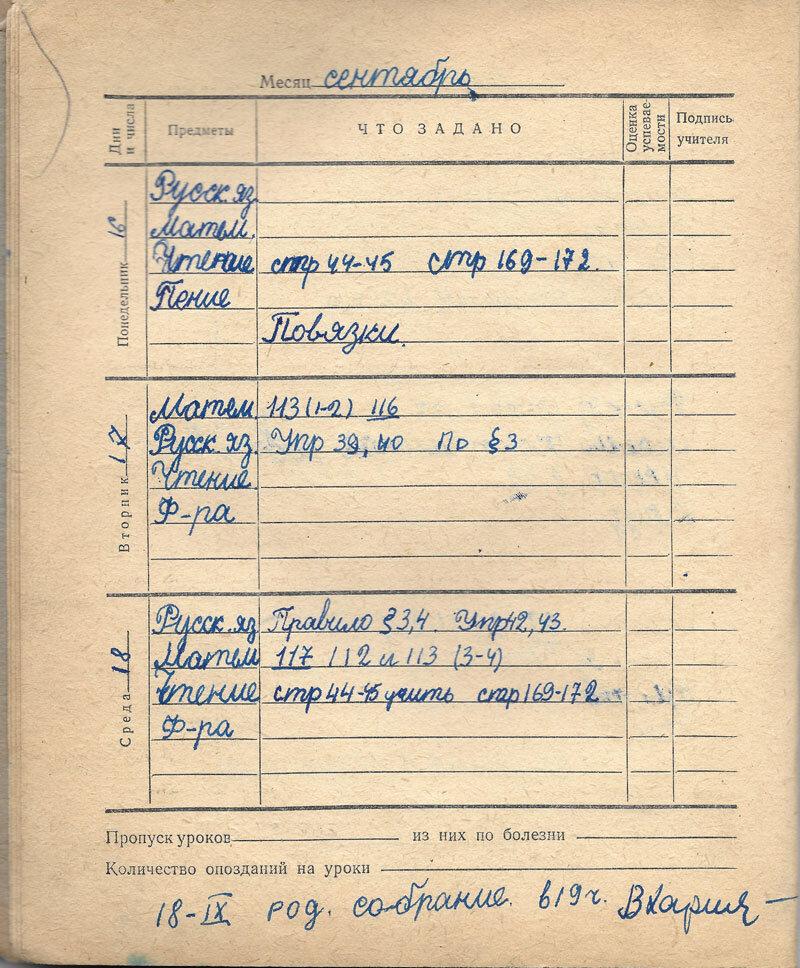 Месяц сентябрь
Дни и числа Предметы ЧТО ЗАДАНО Оценка успевае-мости Подпись учителя
Понедельник 16
Русск. яз.
Матем.
Чтение стр 44-45 стр 169-172.
Пение
Повязки.
Вторник 17
Матем. 113 (1-2) 116
Русск. яз. Упр 39, 40 по § 3
Чтение.
Ф-ра
Среда 18
Русск. яз Правило § 3,4. Упр 42, 43.
Матем 117 112 и 113 (3-4)
Чтение стр 44-45 учить стр 169-172
Ф-ра
Пропуск уроков из них по болезни
Количество опозданий на уроки
18-IX род. собрание. в 19 ч.